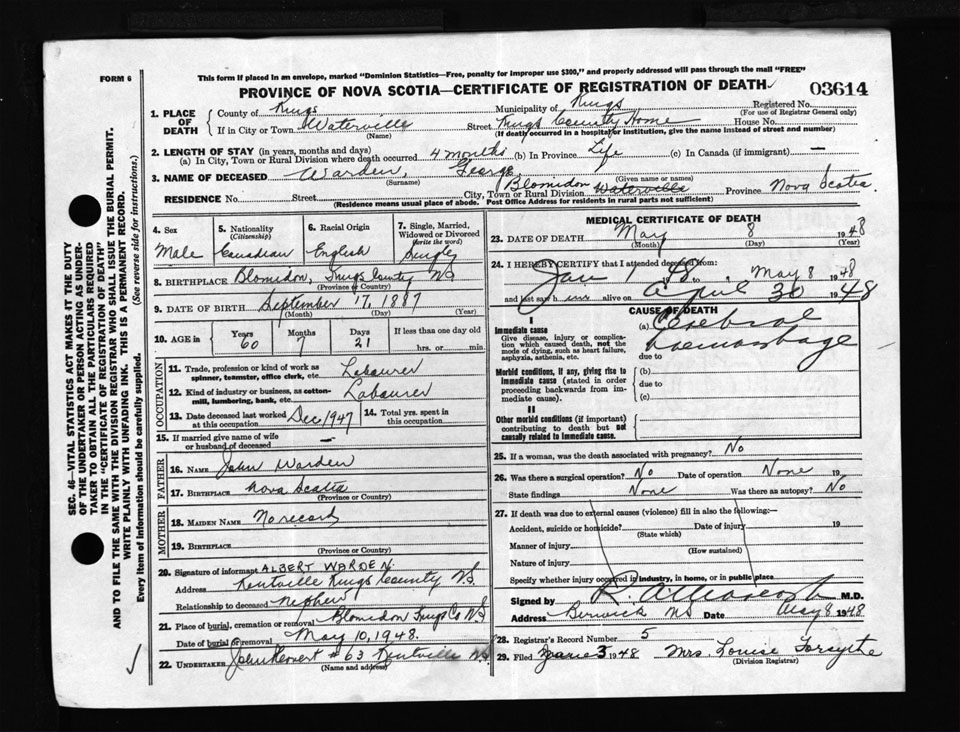 FORM 6
This form if placed in an envelope, marked "Dominion Statistics—Free, penalty for improper use $300," and properly addressed will pass through the mail "FREE"
PROVINCE OF NOVA SCOTIA—CERTIFICATE OF REGISTRATION OF DEATH
03614
SEC. 46—VITAL STATISTICS ACT MAKES IT THE DUTY
OF THE UNDERTAKER OR PERSON ACTING AS UNDER-
TAKER TO OBTAIN ALL THE PARTICULARS REQUIRED
IN THE "CERTIFICATE OF REGISTRATION OF DEATH"
AND TO FILE THE SAME WITH THE DIVISION REGISTRAR WHO SHALL ISSUE THE BURIAL PERMIT.
WRITE PLAINLY WITH UNFADING INK. THIS IS A PERMANENT RECORD.
Every item of information should be carefully supplied. (See reverse side for instructions.)
1. PLACE OF DEATH
County of Kings Municipality of Kings Registered No.
(For use of Registrar General only)
If in City or Town Waterville Street Kings County Home House No.
(Name) (If death occurred in a hospital or institution, give the name instead of street and number)
2. LENGTH OF STAY (in years, months and days)
(a) In City, Town or Rural Division where death occurred 4 months (b) In Province Life (c) In Canada (if immigrant) —
3. NAME OF DECEASED Warden, George
(Surname) (Given name or names)
RESIDENCE No. Street City, Town or Rural Division Blomidon Waterville Province Nova Scotia.
(Residence means usual place of abode. Post Office Address for residents in rural parts not sufficient)
4. Sex Male
5. Nationality (Citizenship) Canadian
6. Racial Origin English
7. Single, Married, Widowed or Divorced (write the word)
8. BIRTHPLACE Blomidon, Kings County NS
(Province or Country)
9. DATE OF BIRTH September 17, 1887
(Month) (Day) (Year)
10. AGE in Years 60 Months 7 Days 21 If less than one day old hrs. or min.
OCCUPATION
11. Trade, profession or kind of work as spinner, teamster, office clerk, etc. Labourer
12. Kind of industry or business, as cotton-mill, lumbering, bank, etc. Labourer
13. Date deceased last worked at this occupation Dec 1947 14. Total yrs. spent in this occupation
15. If married give name of wife or husband of deceased —
FATHER
16. NAME John Warden
17. BIRTHPLACE Nova Scotia
(Province or Country)
MOTHER
18. MAIDEN NAME No record
19. BIRTHPLACE
(Province or Country)
20. Signature of informant ALBERT WARDEN.
Address Kentville Kings County NS
Relationship to deceased Nephew
21. Place of burial, cremation or removal Blomidon Kings Co NS
Date of burial or removal May 10, 1948.
22. UNDERTAKER # 63 Kentville NS
(Name and address)
MEDICAL CERTIFICATE OF DEATH
23. DATE OF DEATH May 8 1948
(Month) (Day) (Year)
24. I HEREBY CERTIFY that I attended deceased from:
Jan 1 48 to May 8 1948
and last saw h im alive on April 30 1948
CAUSE OF DEATH
I
Immediate cause
Give disease, injury or complication which caused death, not the mode of dying, such as heart failure, asphyxia, asthenia, etc.
(a) Cerebral
haemorrhage
due to
Morbid conditions, if any, giving rise to immediate cause (stated in order proceeding backwards from immediate cause).
(b)
due to
(c)
II
Other morbid conditions (if important) contributing to death but not causally related to immediate cause.
25. If a woman, was the death associated with pregnancy? No
26. Was there a surgical operation? No Date of operation None 19
State findings None Was there an autopsy? No
27. If death was due to external causes (violence) fill in also the following:—
Accident, suicide or homicide? Date of injury 19
(State which)
Manner of injury
(How sustained)
Nature of injury
Specify whether injury occurred in industry, in home, or in public place
Signed by M.D.
Address Berwick NS Date May 8 1948
28. Registrar's Record Number 5
29. Filed June 3 1948 Mrs. Louise Forsythe
(Division Registrar)